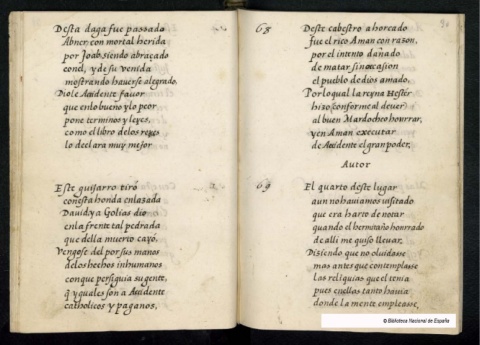 Desta daga fue passado
Abner con mortal herida
por Joab siendo abraçado
con el, y de su venida
mostrando hauerse alegrado.
Diole Accidente fauor
que en lo bueno y lo peor
pone terminos y leyes,
como el libro de los reyes
lo declara muy mejor
Este guijarro tiró
con esta honda enlazada
Dauid, y a Golias dio
en la frente tal pedrada
que della muerto cayó.
Vengose del por sus manos
de los hechos inhumanos
con que persiguia su gente,
q̃ yguales son a Accidente
catholicos y paganos,
68
Deste cabestro ahorcado
fue el rico Aman con razon,
por el intento dañado
de matar sin occasion
el pueblo de dios amado.
Por lo qual la reyna Hester
hizo, conforme al deuer
al buen Mardocheo hourrar,
y en Aman executar
de Accidente el gran poder,
Autor
69
El quarto deste lugar
aun no hauiamos visitado
que era harto de notar
quando el hermitaño hourrado
de alli me quiso lleuar,
Disiendo que no oluidasse
mas antes que contemplasse
las reliquias que el tenia
pues en ellas tanto hauia
donde la mente empleasse,
© Biblioteca Nacional de España